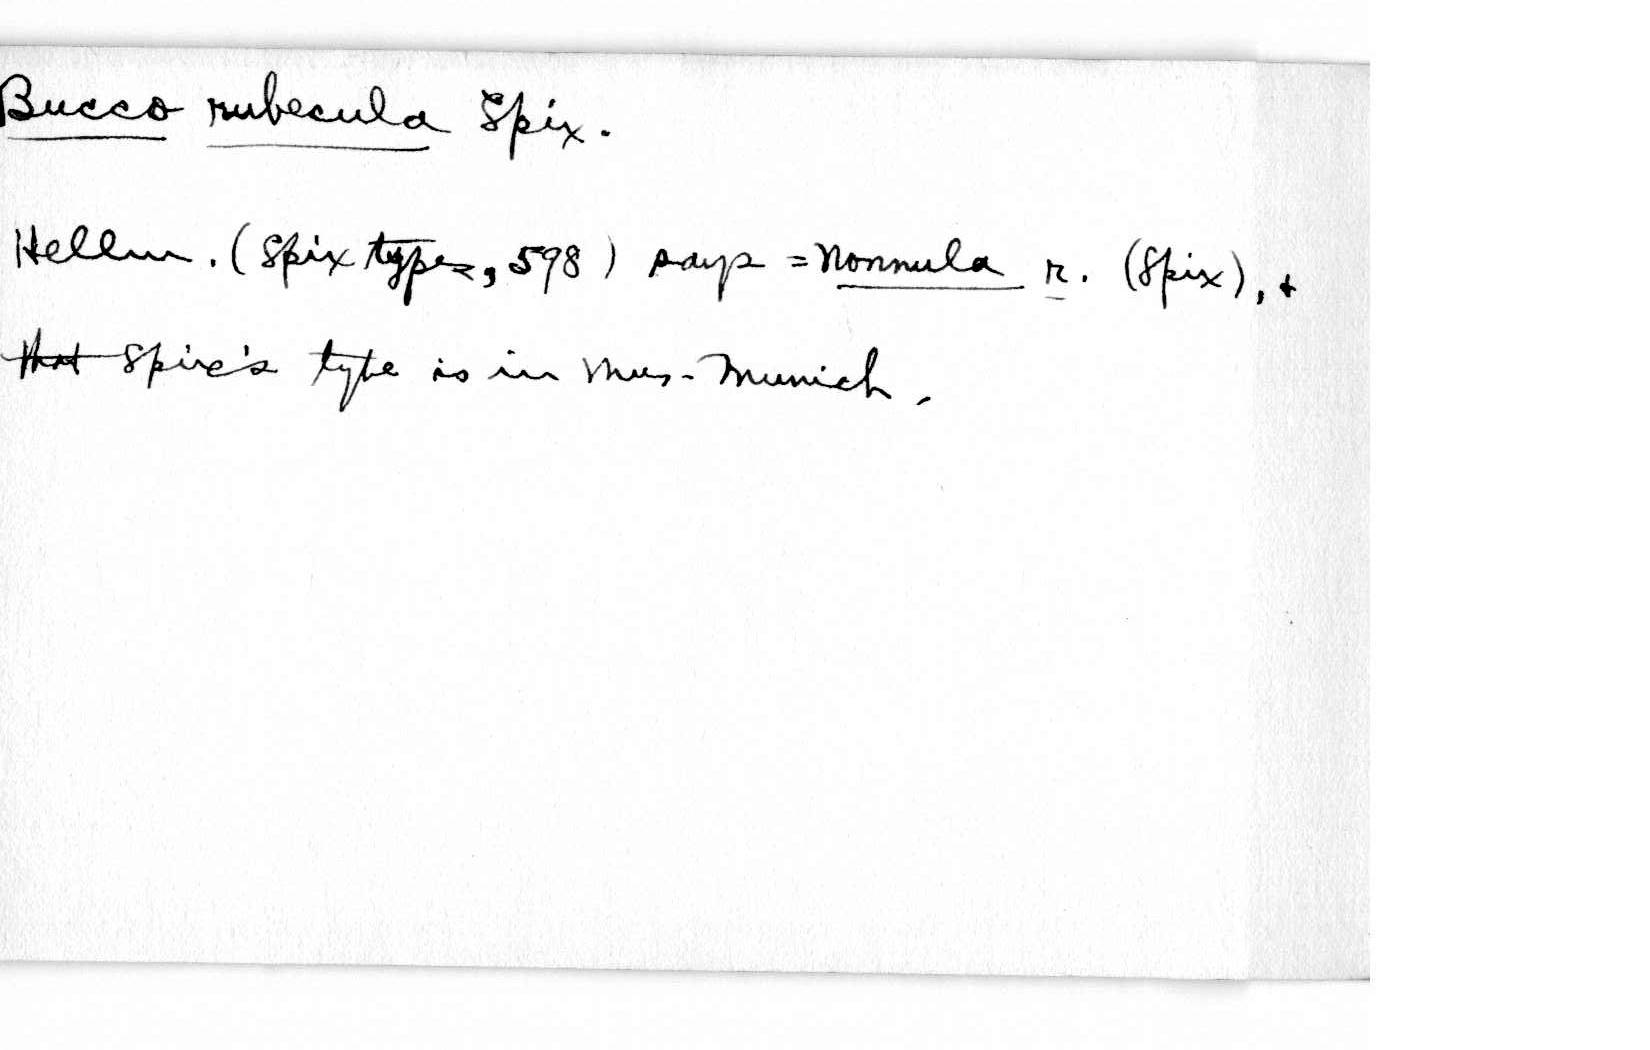 Bucco rubecula Spix.
Hellm. (Spix types, 598) says = Nonnula r. (Spix), +
that Spix's type is in Mus. Munich.